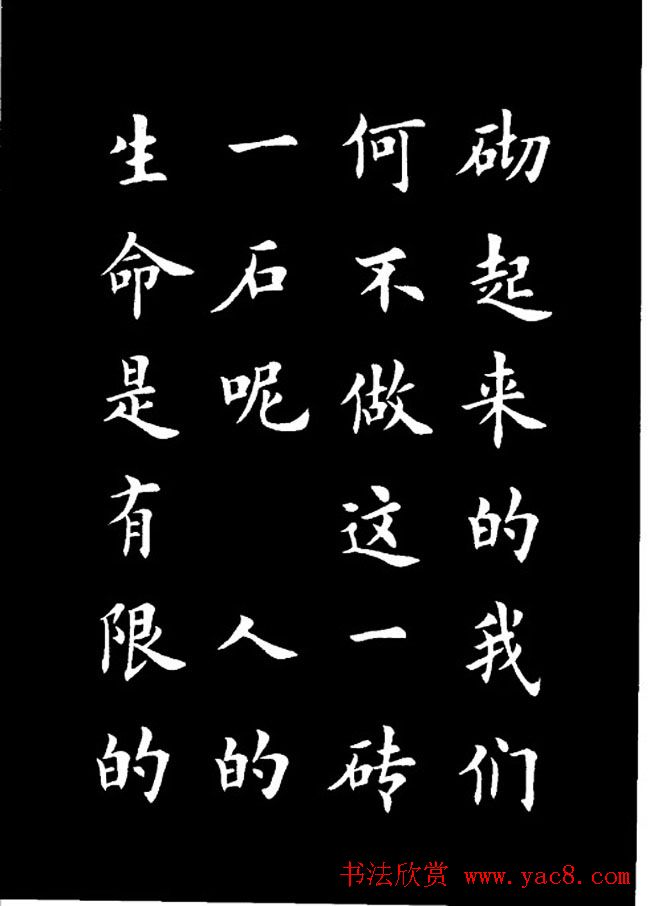 砌起来的我们
何不做这一砖
一石呢 人的
生命是有限的
书法欣赏 www.yac8.com